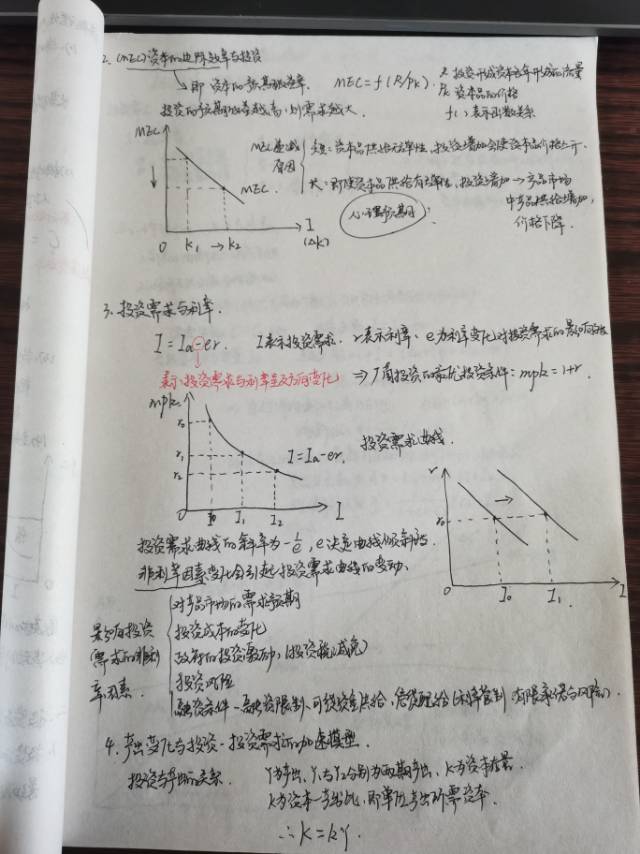 2. (MEC)资本的边际效率与投资
即 资本的预期收益率. MEC=f(R/Pk).
R: 投资形成资本当年开始的流量
Pk: 资本品的价格
f( ) 表示函数关系
投资的预期收益越高,则需求越大.
MEC
MEC递减原因
短: 资本品供给无弹性,投资增加会使资本品价格上升.
长: 即使资本品供给有弹性,投资增加→产品市场
中产品供给增加,
价格下降.
心理预期
MEC.
0 K₁ →K₂ I
(△K)
3. 投资需求与利率.
I=Ia-er. I表示投资需求. r表示利率. e为利率变化对投资需求的影响
表示投资需求与利率呈反方向变化
⇒厂商投资的最优投资条件: mpk=1+r
mpk
r₀
r₁
r₂
I=Ia-er.
投资需求曲线.
0 I₀ I₁ I₂ I
r
r₀
0 I₀ I₁ I
投资需求曲线的斜率为-1/e, e决定曲线倾斜
非利率因素变化会引起投资需求曲线的变动.
影响投资
需求的非利
率因素.
对产品市场的需求预期
投资成本的变化
政府的投资激励,(投资税减免)
投资风险
融资条件—融资限制、可贷资金供给,信贷配给(利率管制
4. 产出变化与投资-投资需求的加速模型.
投资与产出的关系.
Y为产出, Y₁与Y₂分别为两期产出, K为资本存量.
k为资本—产出比,即单位产出所需资本.
∴K=kY.